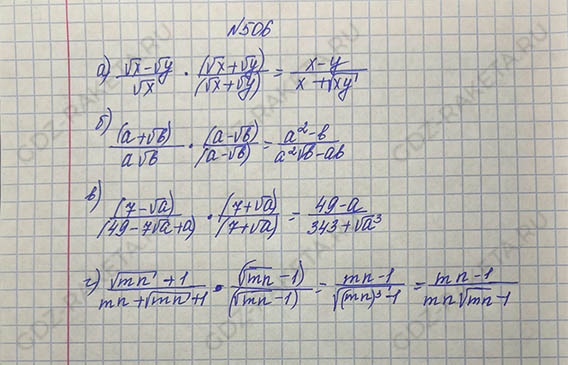 №506
а) (√x-√y)/√x · (√x+√y)/(√x+√y) = (x-y)/(x+√xy)
б) (a+√b)/(a√b) · (a-√b)/(a-√b) = (a²-b)/(a²√b-ab)
в) (7-√a)/(49-7√a+a) · (7+√a)/(7+√a) = (49-a)/(343+√a³)
г) (√mn+1)/(mn+√mn+1) · (√mn-1)/(√mn-1) = (mn-1)/(√(mn)³-1) = (mn-1)/(mn√mn-1)
GDZ-RAKETA.RU